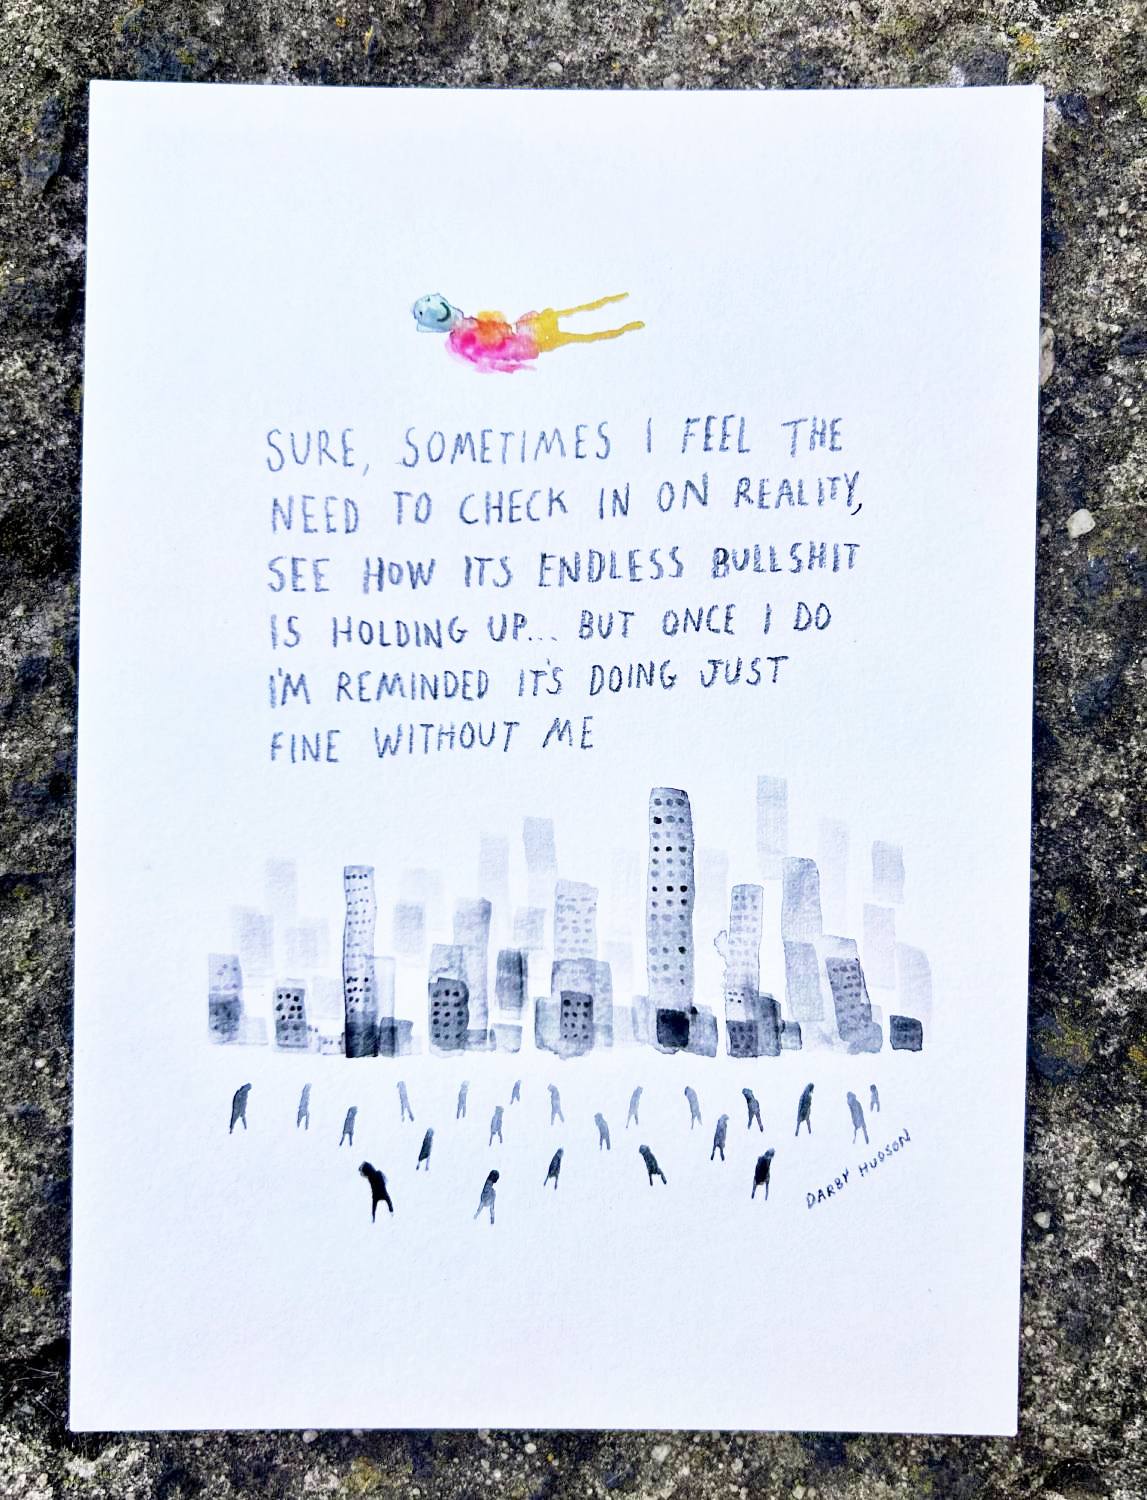 SURE, SOMETIMES I FEEL THE
NEED TO CHECK IN ON REALITY,
SEE HOW ITS ENDLESS BULLSHIT
IS HOLDING UP... BUT ONCE I DO
I'M REMINDED IT'S DOING JUST
FINE WITHOUT ME
DARBY HUDSON